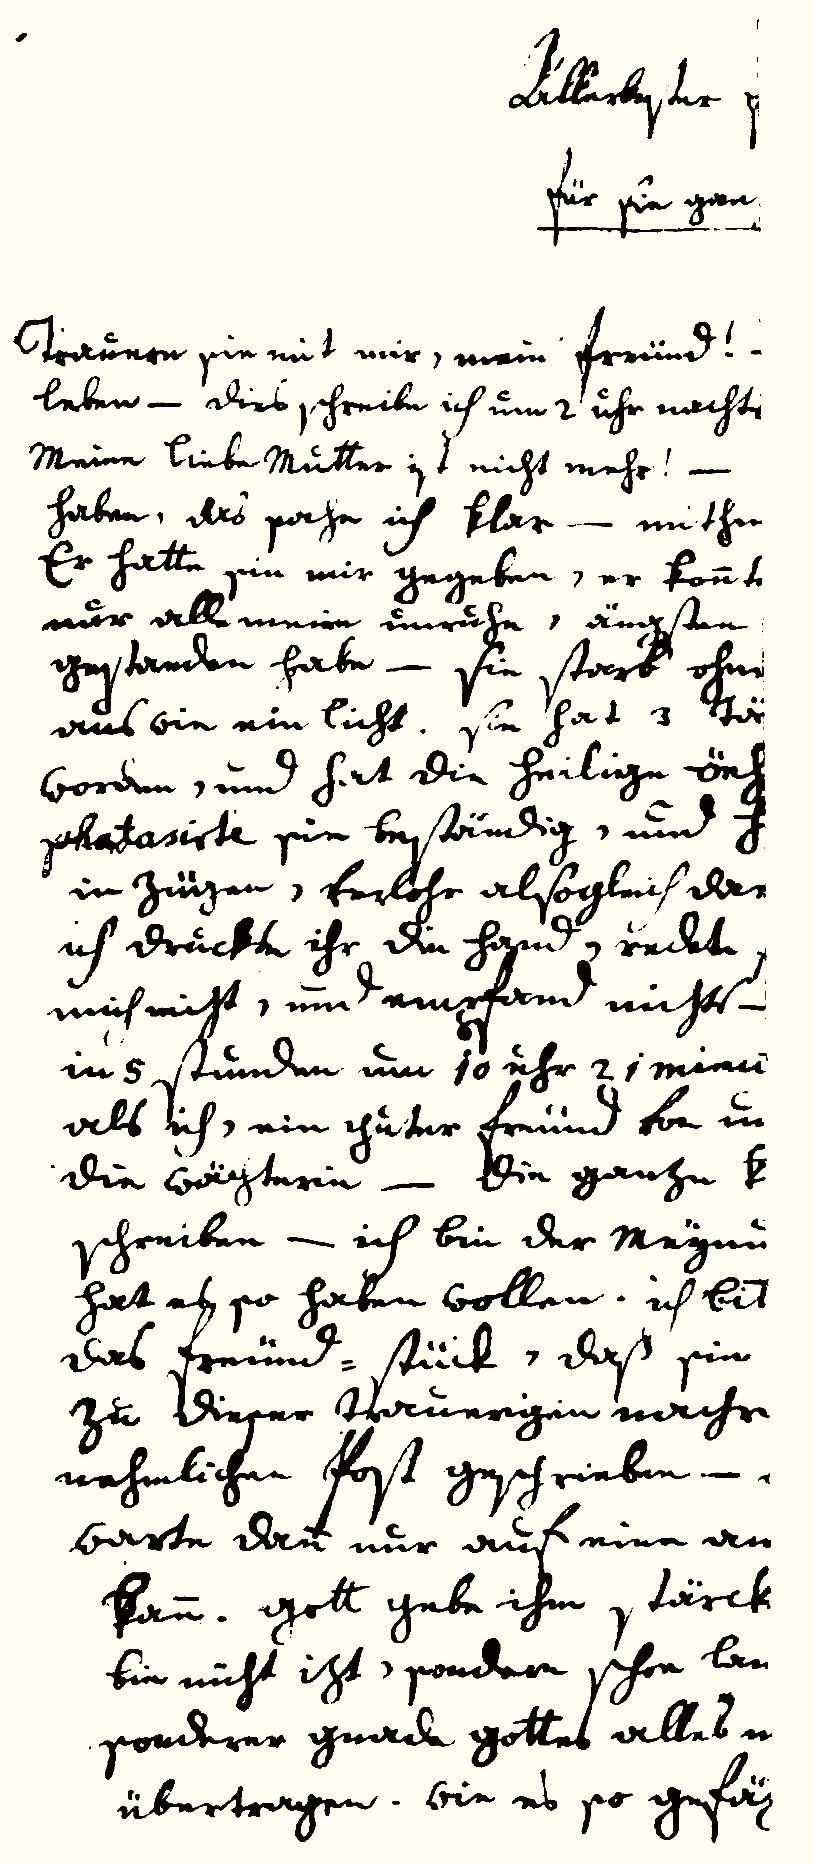 Allerbester f
für sie gan
Trauern sie mit mir, mein freünd! -
leben — dies schreibe ich um 2 uhr nachts
Meine liebe Mutter ist nicht mehr! —
haben, das sahe ich klar — mithin
Er hatte sie mir gegeben, er kon̄te
nur alle meine unruhe, ängsten
gestanden habe — sie starb ohne
aus wie ein licht. sie hat 3 Tä
worden, und hat die heilige öeh
phatasirte sie beständig, und
in Zügen, verlohr alsogleich dar
ich druckte ihr die hand, redete
mich nicht, und empfand nichts —
in 5 stunden um 10 uhr 21 minu
als ich, ein guter freünd von un
die wächterin — die ganze k
schreiben — ich bin der Meynu
hat es so haben wollen. ich bit
das freünd=stück, daß sie
zu dieser trauerigen nachr
nehmlichen Post geschrieben —
warte dan̄ nur auf eine an
kan̄. gott gebe ihm stärck
bin nicht izt, sondern schon lan
sonderer gnade gottes alles m
übertragen. wie es so gefä